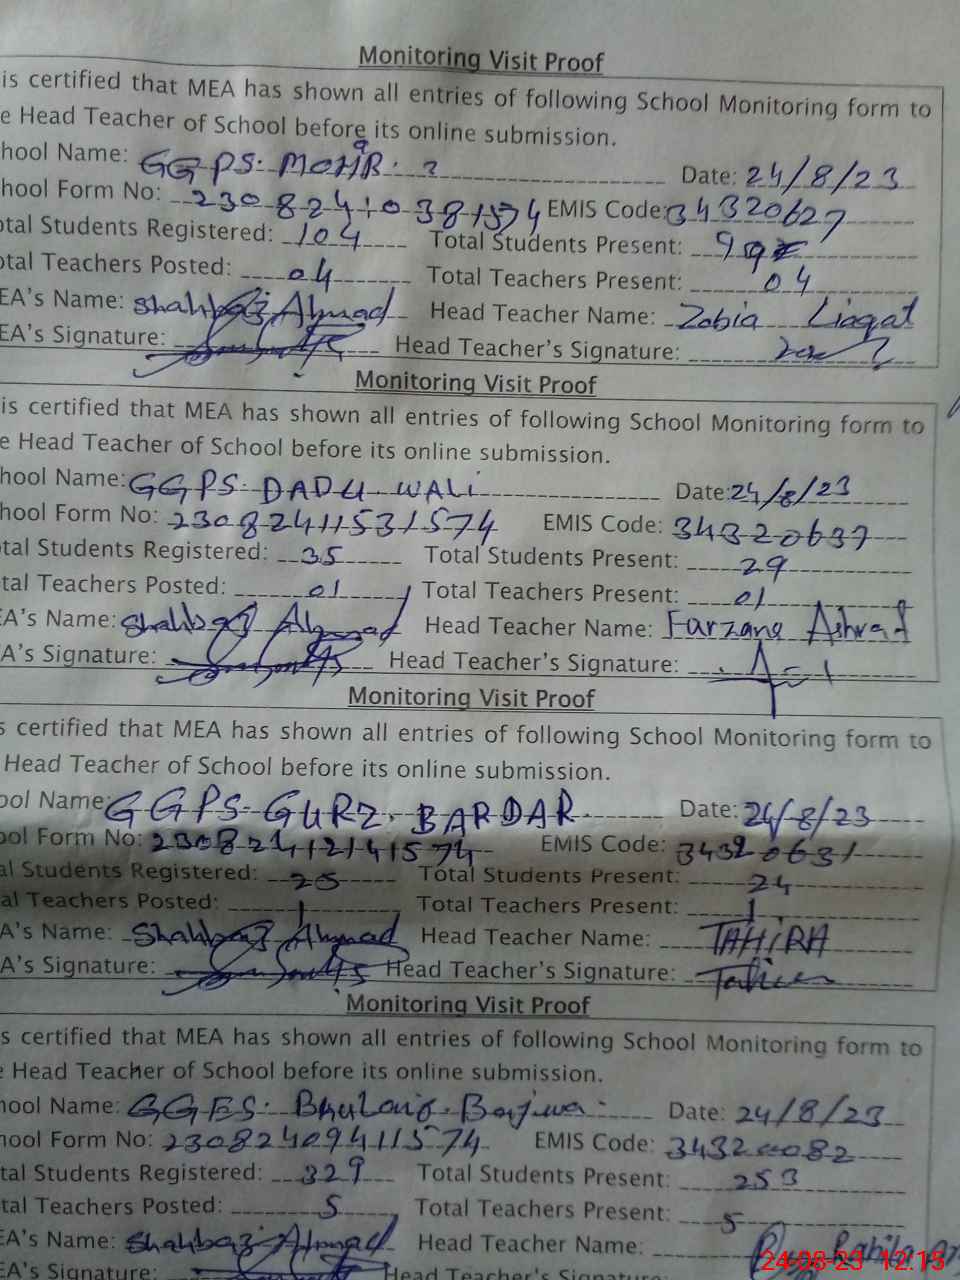 Monitoring Visit Proof
is certified that MEA has shown all entries of following School Monitoring form to
e Head Teacher of School before its online submission.
hool Name: GGPS. MOHR. Date: 24/8/23
hool Form No: 23082410381574 EMIS Code: 34320627
otal Students Registered: 104 Total Students Present:
otal Teachers Posted: 04 Total Teachers Present: 04
EA's Name: Shahbaz Ahmad Head Teacher Name: Zobia Liaqat
EA's Signature: Head Teacher's Signature:
Monitoring Visit Proof
is certified that MEA has shown all entries of following School Monitoring form to
e Head Teacher of School before its online submission.
hool Name: GGPS. DADU. WALI Date: 24/8/23
hool Form No: 23082411531574 EMIS Code: 34320637
tal Students Registered: 35 Total Students Present: 29
tal Teachers Posted: 01 Total Teachers Present: 01
EA's Name: Shahbaz Ahmad Head Teacher Name: Farzana Ashraf
A's Signature: Head Teacher's Signature:
Monitoring Visit Proof
s certified that MEA has shown all entries of following School Monitoring form to
Head Teacher of School before its online submission.
ool Name: GGPS. GURZ. BARDAR. Date: 24/8/23
ool Form No: 23082412141574 EMIS Code: 34320631
al Students Registered: 25 Total Students Present: 24
al Teachers Posted: 1 Total Teachers Present: 1
A's Name: Shahbaz Ahmad Head Teacher Name: TAHIRA
A's Signature: Head Teacher's Signature:
Monitoring Visit Proof
s certified that MEA has shown all entries of following School Monitoring form to
e Head Teacher of School before its online submission.
hool Name: GGES. Date: 24/8/23
hool Form No: 23082409411574 EMIS Code: 34320082
tal Students Registered: 329 Total Students Present: 253
tal Teachers Posted: 5 Total Teachers Present: 5
EA's Name: Shahbaz Ahmad Head Teacher Name:
EA's Signature: Head Teacher's Signature:
24-08-23 12:15